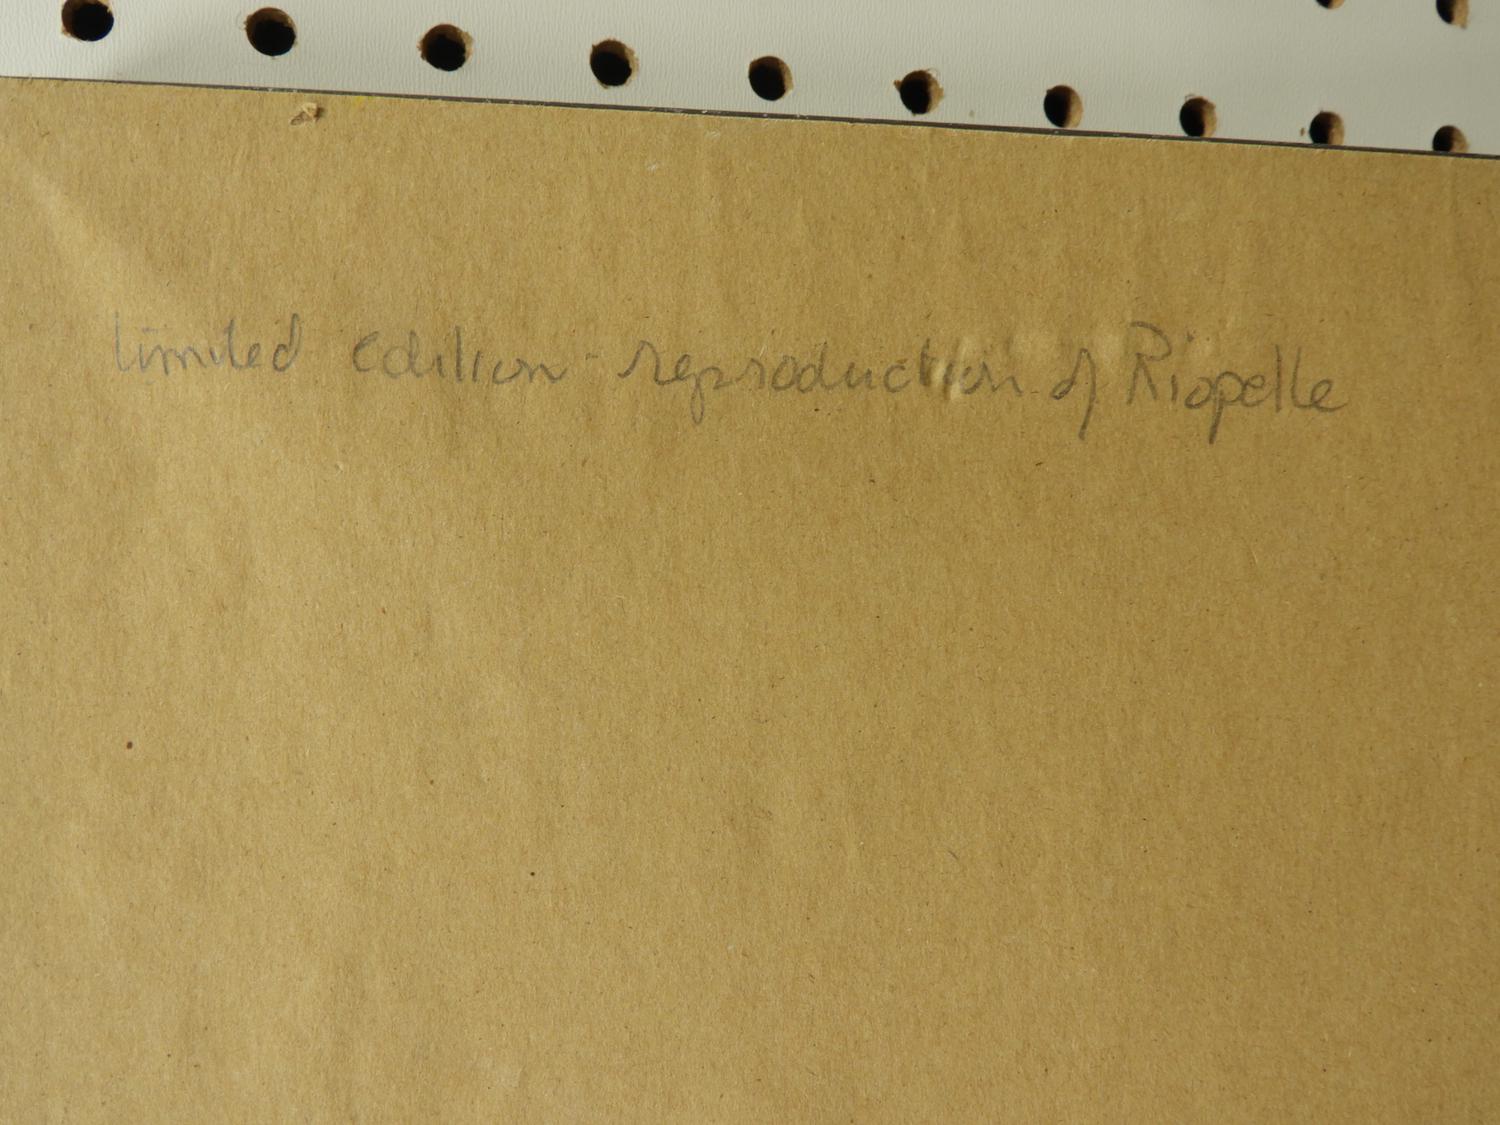 limited edition - reproduction of Riopelle